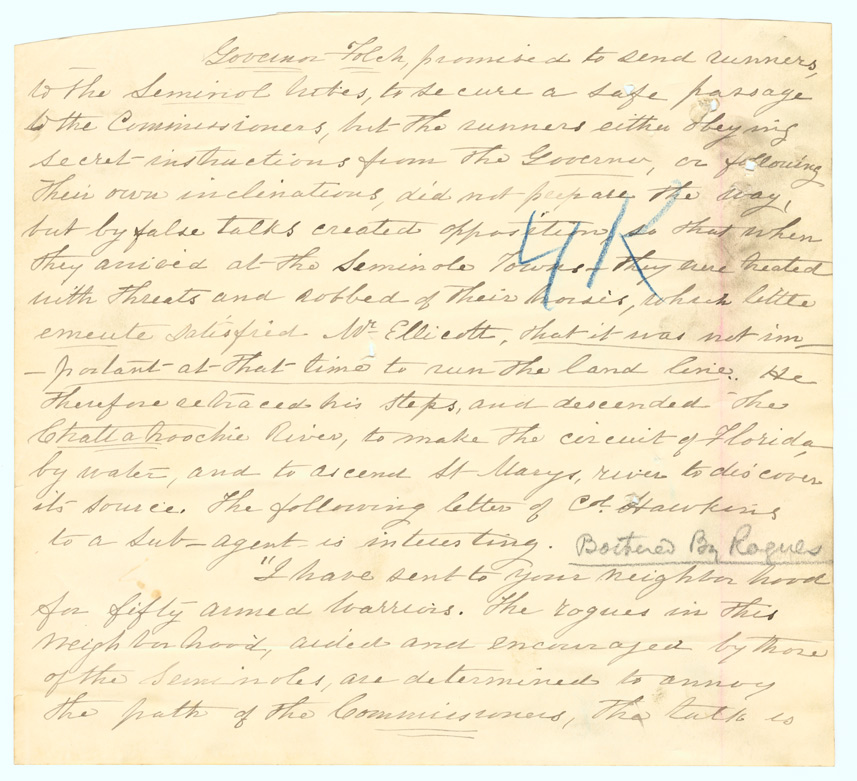 Governor Folch, promised to send runners,
to the Seminol tribes, to secure a safe passage
to the Commissioners, but the runners either obeying
secret instructions from the Governor, or following
their own inclinations, did not prepare the way,
but by false talks created opposition, so that when
they arrived at the Seminole Towns - they were treated
with threats and robbed of their horses, which little
emeute satisfied Mr. Ellicott, that it was not im-
-portant at that time to run the land line. He
therefore retraced his steps, and descended the
Chattahoochie River, to make the circuit of Florida,
by water, and to ascend St Marys, river to discover
its source. The following letter of Col. Hawkins
to a sub-agent is interesting.
Bothered By Rogues
"I have sent to your neighborhood
for fifty armed warriors. The rogues in this
neighborhood, aided and encouraged by those
of the Seminoles, are determined to annoy
the path of the Commissioners, the talk is
4K